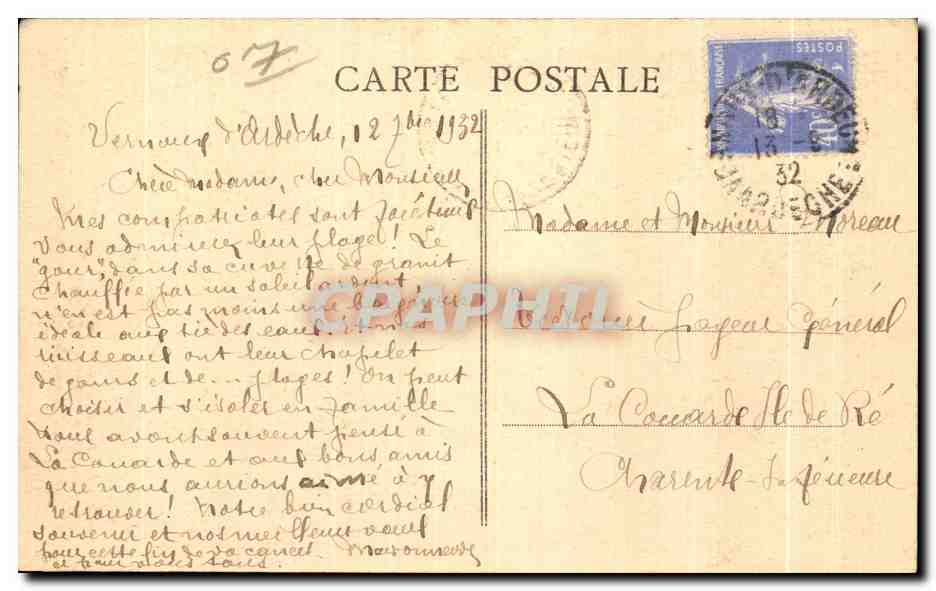 07
CARTE POSTALE
Vernoux d'Ardèche, 12 7bre 1932
Chère Madame, cher Monsieur
Mes compatriotes sont facétieux
Vous admirerez leur plage! Le
"gour" dans sa cuvette de granit
chauffée par un soleil ardent,
n'en est pas moins une baignoire
idéale aux tièdes eaux. Et nos
ruisseaux ont leur chapelet
de gours et de... plages! On peut
choisir et s'isoler en famille
Nous avons souvent pensé à
La Couarde et aux bons amis
que nous aurions aimé à y
retrouver! Notre bien cordial
souvenir et nos meilleurs vœux
pour cette fin de vacances.
et pour vous tous.
Madame et Monsieur Moreau
Trésorier Payeur Général
La Couarde Ile de Ré
Charente-Inférieure
POSTES
FRANÇAISE
40
18
13
32
ARDECHE
CPAPHIL